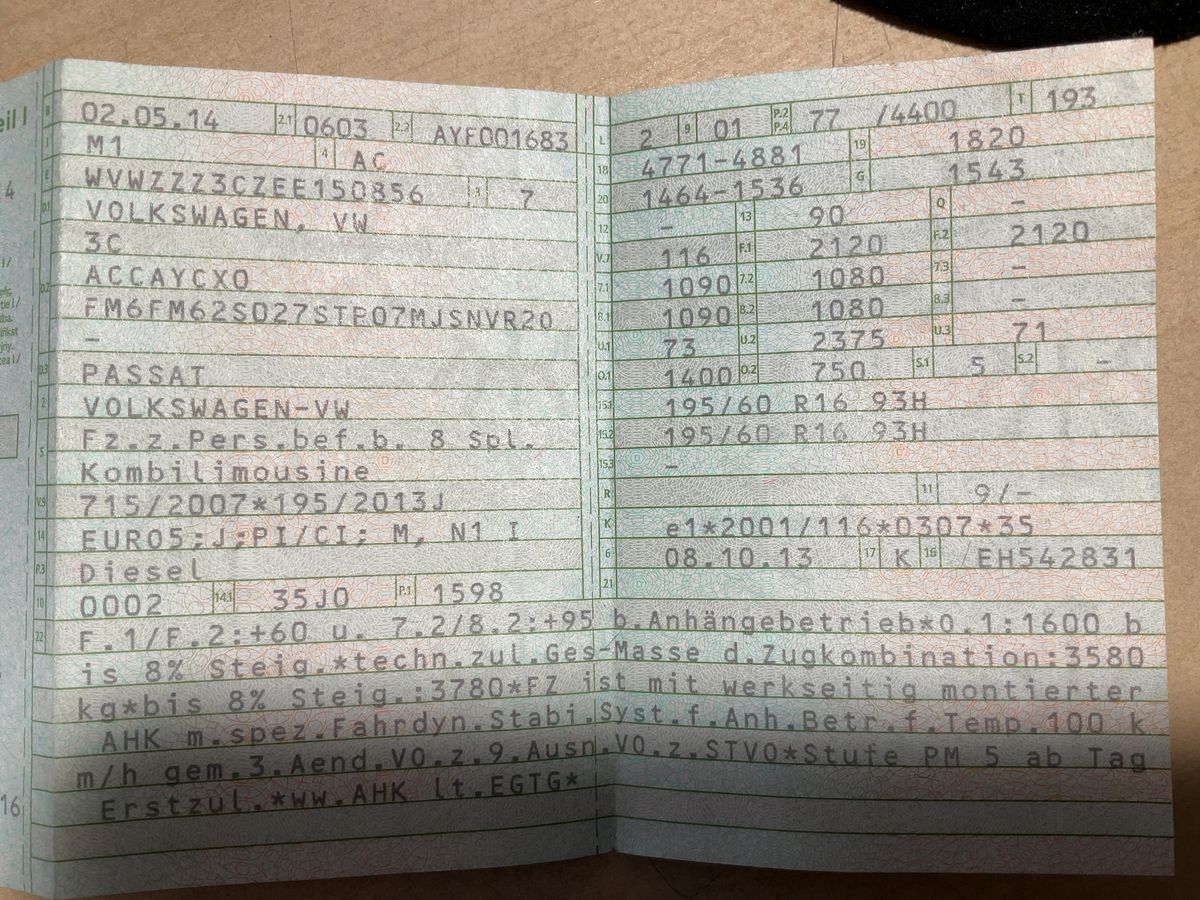 eil I
4
16
B 02.05.14 2.1 0603 2.2 AYF001683
J M1 4 AC
E WVWZZZ3CZEE150856 3 7
D.1 VOLKSWAGEN, VW
3C
D.2 ACCAYCX0
FM6FM62S027STP07MJSNVR20
–
D.3 PASSAT
2 VOLKSWAGEN-VW
5 Fz.z.Pers.bef.b. 8 Spl.
Kombilimousine
V.9 715/2007*195/2013J
14 EURO5;J;PI/CI; M, N1 I
P.3 Diesel
10 0002 14.1 35J0 P.1 1598
L 2 9 01 P.2 P.4 77 /4400 T 193
18 4771-4881 19 1820
20 1464-1536 G 1543
12 – 13 90 Q –
V.7 116 F.1 2120 F.2 2120
7.1 1090 7.2 1080 7.3 –
8.1 1090 8.2 1080 8.3 –
U.1 73 U.2 2375 U.3 71
O.1 1400 O.2 750 S.1 5 S.2 –
15.1 195/60 R16 93H
15.2 195/60 R16 93H
15.3 –
R 11 9/-
K e1*2001/116*0307*35
6 08.10.13 17 K 16 /EH542831
21
22 F.1/F.2:+60 u. 7.2/8.2:+95 b.Anhängebetrieb*0.1:1600 b
is 8% Steig.*techn.zul.Ges-Masse d.Zugkombination:3580
kg*bis 8% Steig.:3780*FZ ist mit werkseitig montierter
AHK m.spez.Fahrdyn.Stabi.Syst.f.Anh.Betr.f.Temp.100 k
m/h gem.3.Aend.VO.z.9.Ausn.VO.z.STVO*Stufe PM 5 ab Tag
Erstzul.*ww.AHK lt.EGTG*